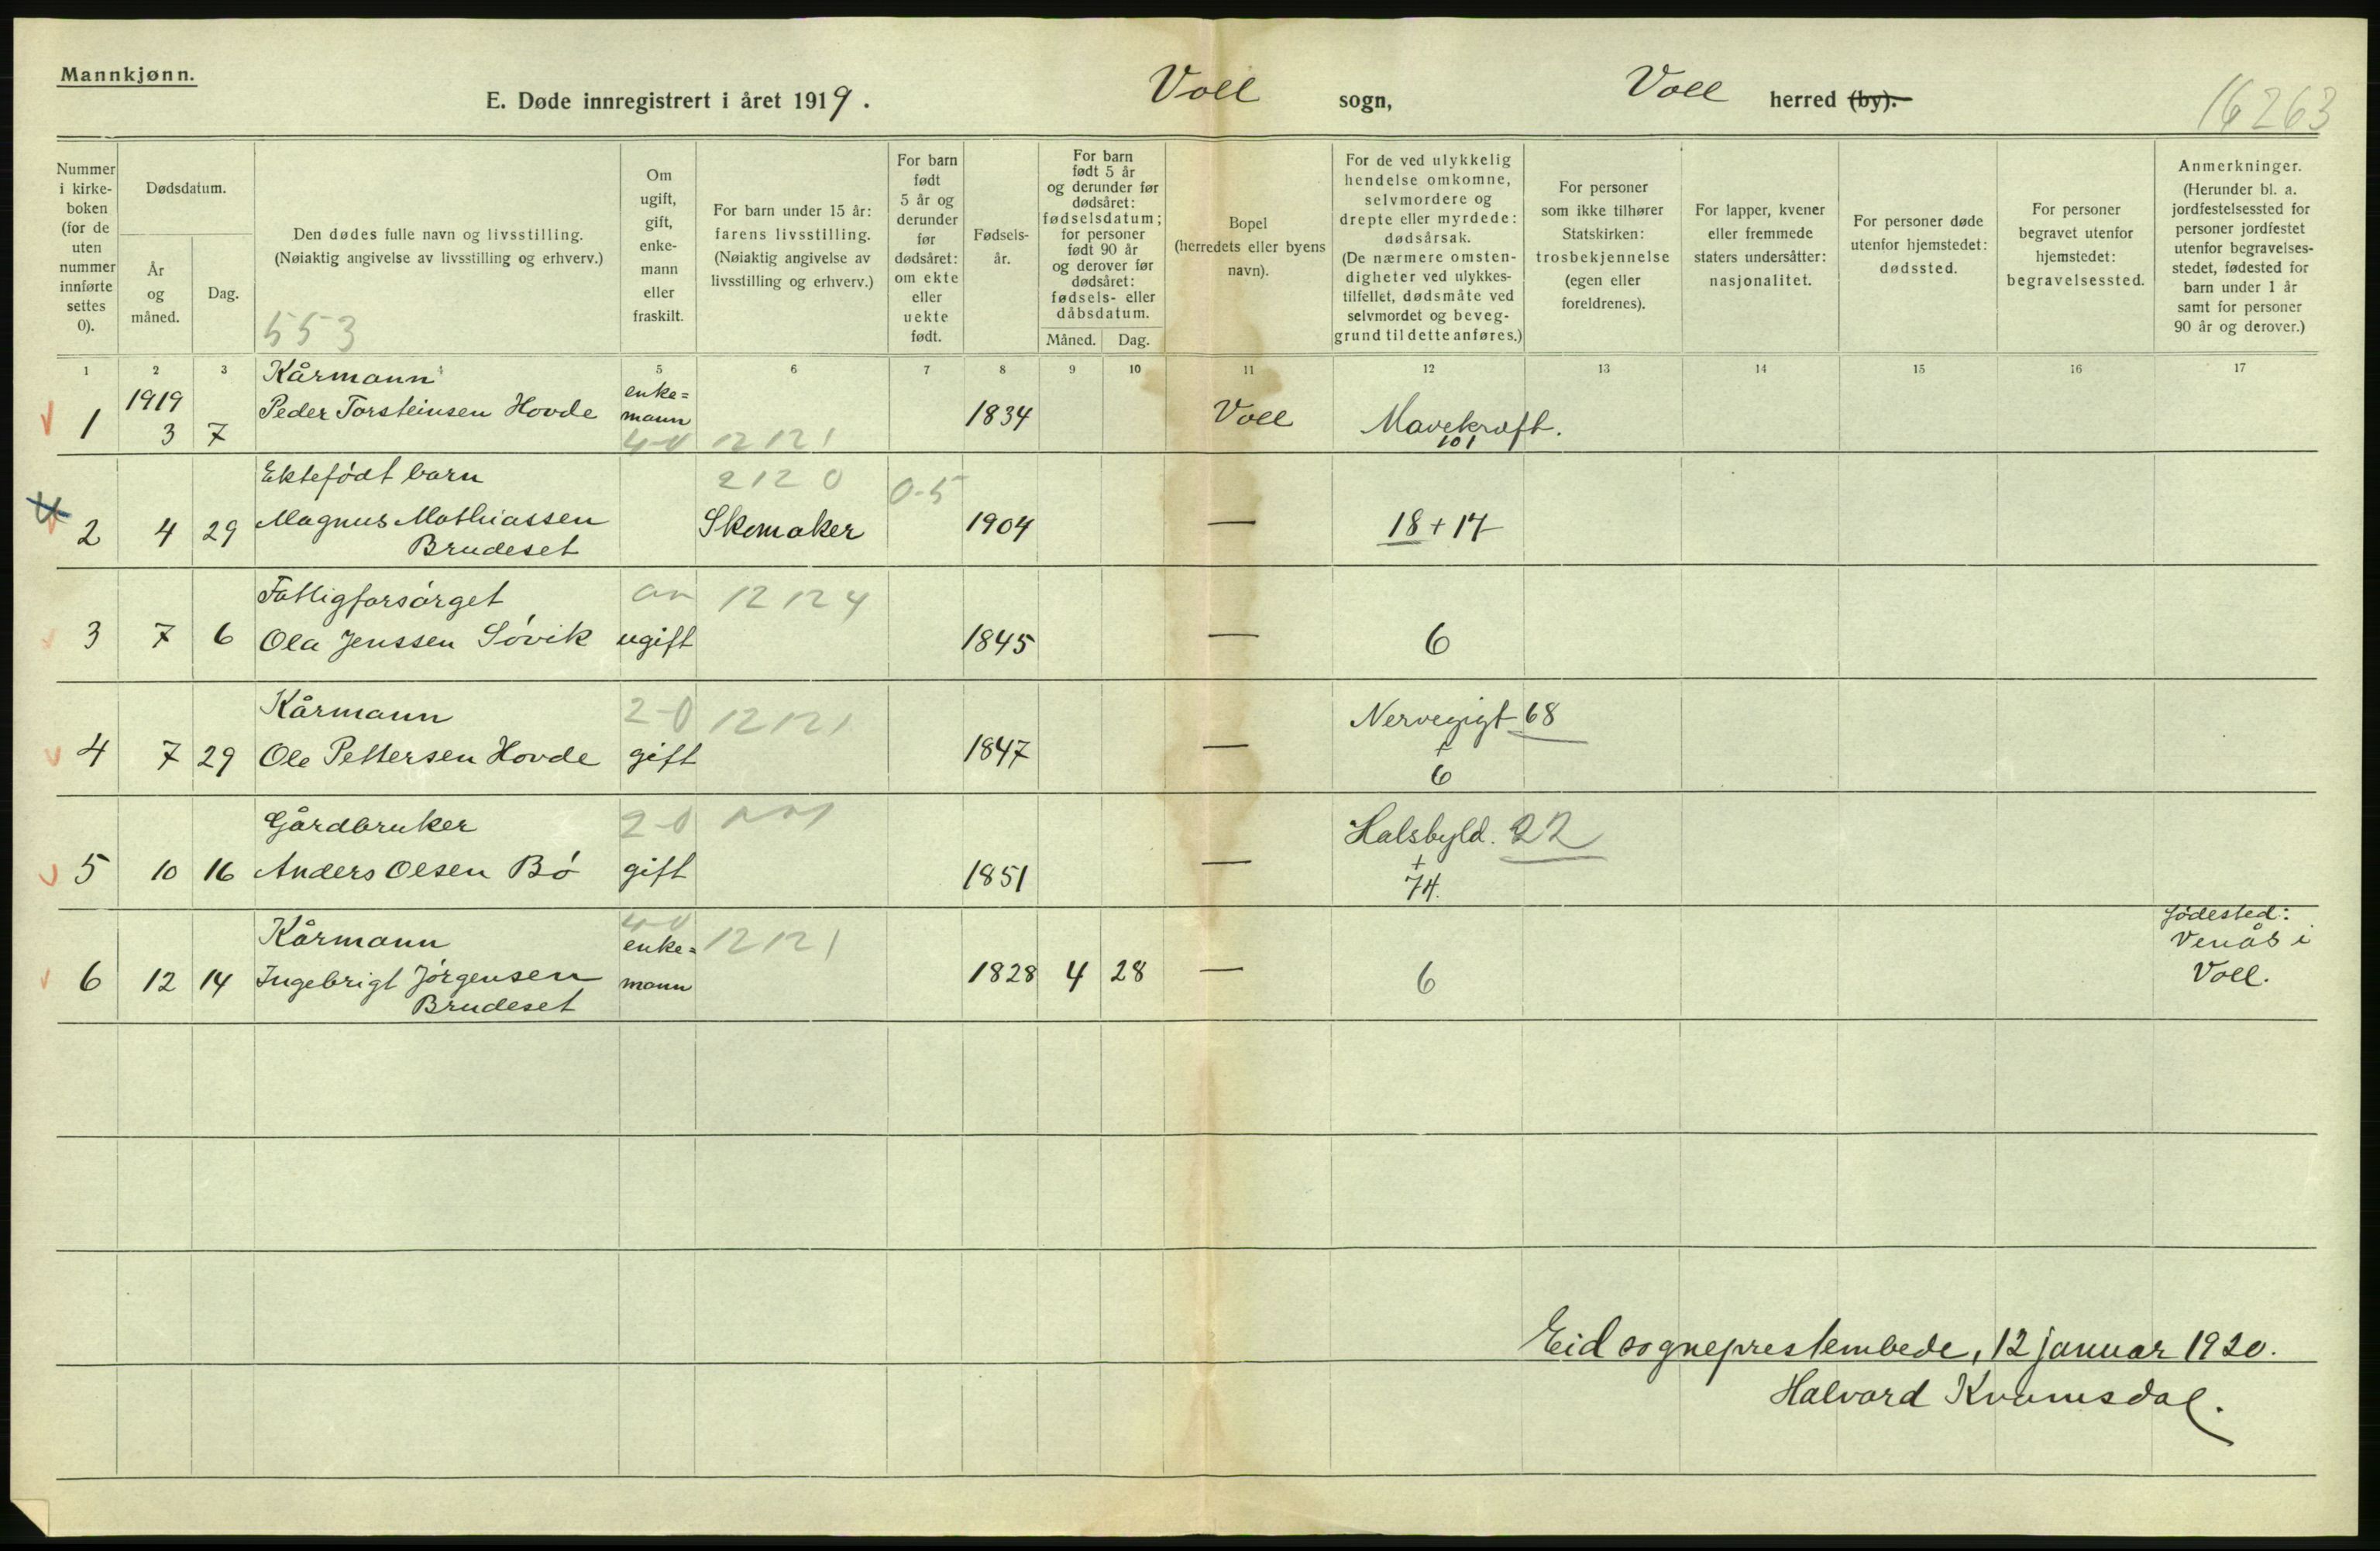 Mannkjønn.
E. Døde innregistrert i året 1919. Voll sogn, Voll herred (by).
16263
Nummer i kirke-boken (for de uten nummer innførte settes 0).
Dødsdatum.
År og måned.
Dag.
Den dødes fulle navn og livsstilling.
(Nøiaktig angivelse av livsstilling og erhverv.)
553
Om ugift, gift, enke-mann eller fraskilt.
For barn under 15 år: farens livsstilling.
(Nøiaktig angivelse av livsstilling og erhverv.)
For barn født 5 år og derunder før dødsåret: om ekte eller uekte født.
Fødsels-år.
For barn født 5 år og derunder før dødsåret: fødselsdatum; for personer født 90 år og derover før dødsåret: fødsels- eller dåbsdatum.
Måned. Dag.
Bopel (herredets eller byens navn).
For de ved ulykkelig hendelse omkomne, selvmordere og drepte eller myrdede: dødsårsak.
(De nærmere omsten-digheter ved ulykkes-tilfellet, dødsmåte ved selvmordet og beveg-grund til dette anføres.)
For personer som ikke tilhører Statskirken: trosbekjennelse (egen eller foreldrenes).
For lapper, kvener eller fremmede staters undersåtter: nasjonalitet.
For personer døde utenfor hjemstedet: dødssted.
For personer begravet utenfor hjemstedet: begravelsessted.
Anmerkninger.
(Herunder bl. a. jordfestelsessted for personer jordfestet utenfor begravelses-stedet, fødested for barn under 1 år samt for personer 90 år og derover.)
1 2 3 4 5 6 7 8 9 10 11 12 13 14 15 16 17
Kårmann
1919 enke=
1 3 7 Peder Torsteinsen Hovde mann 1834 Voll Mavekræft.
4-0 12 12 1 101
Ektefødt barn 2 12 0 0-5
2 4 29 Magnus Mathiassen Skomaker 1904 — 18 + 17
Brudeset
Fattigforsørget 12 12 4
3 7 6 Ola Jenssen Søvik ugift 1845 — 6
Kårmann 2-0 12 12 1 Nervegigt 68
4 7 29 Ole Pettersen Hovde gift 1847 — +
6
Gårdbruker 2-0 Halsbyld. 22
5 10 16 Anders Olsen Bø gift 1851 — +
74.
Kårmann 4-0 enke= 12 12 1 fødested:
Venås i
6 12 14 Ingebrigt Jørgensen mann 1828 4 28 — 6 Voll.
Brudeset
Eid sogneprestembede, 12 januar 1920.
Halvard Kvamsdal.